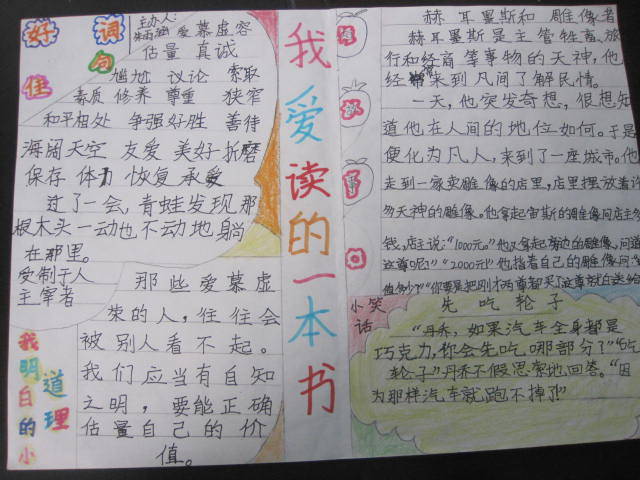 好词佳句
主办人：
爱慕虚容
估量 真诚
尴尬 议论 索取
素质 修养 尊重 狭窄
和平相处 争强好胜 善待
海阔天空 友爱 美好 折磨
保存 体力 恢复 承受
过了一会，青蛙发现那
根木头一动也不动地躺
在那里。
受制于人
主宰者
我明白的小道理
那些爱慕虚
荣的人，往住会
被别人看不起。
我们应当有自知
之明，要能正确
估量自己的价
值。
我爱读的一本书
赫耳墨斯和雕像者
赫耳墨斯是主管牲畜，旅
行和经商等事物的天神，他
经常来到凡间了解民情。
一天，他突发奇想，很想知
道他在人间的地位如何。于是
便化为凡人，来到了一座城市，他
走到一家卖雕像的店里，店里摆放着许
多天神的雕像。他拿起宙斯的雕像问店主
钱，店主说：“1000元。”他又拿起旁边的雕像，问道
这尊呢？”“2000元！”他指着自己的雕像问
值多少？”“你要是把刚才两尊都买了这尊就白送给
小笑话
先吃轮子
“丹乔，如果汽车全身都是
巧克力，你会先吃哪部分？”“吃
轮子”丹乔不假思索地回答。“因
为那样汽车就跑不掉了！”